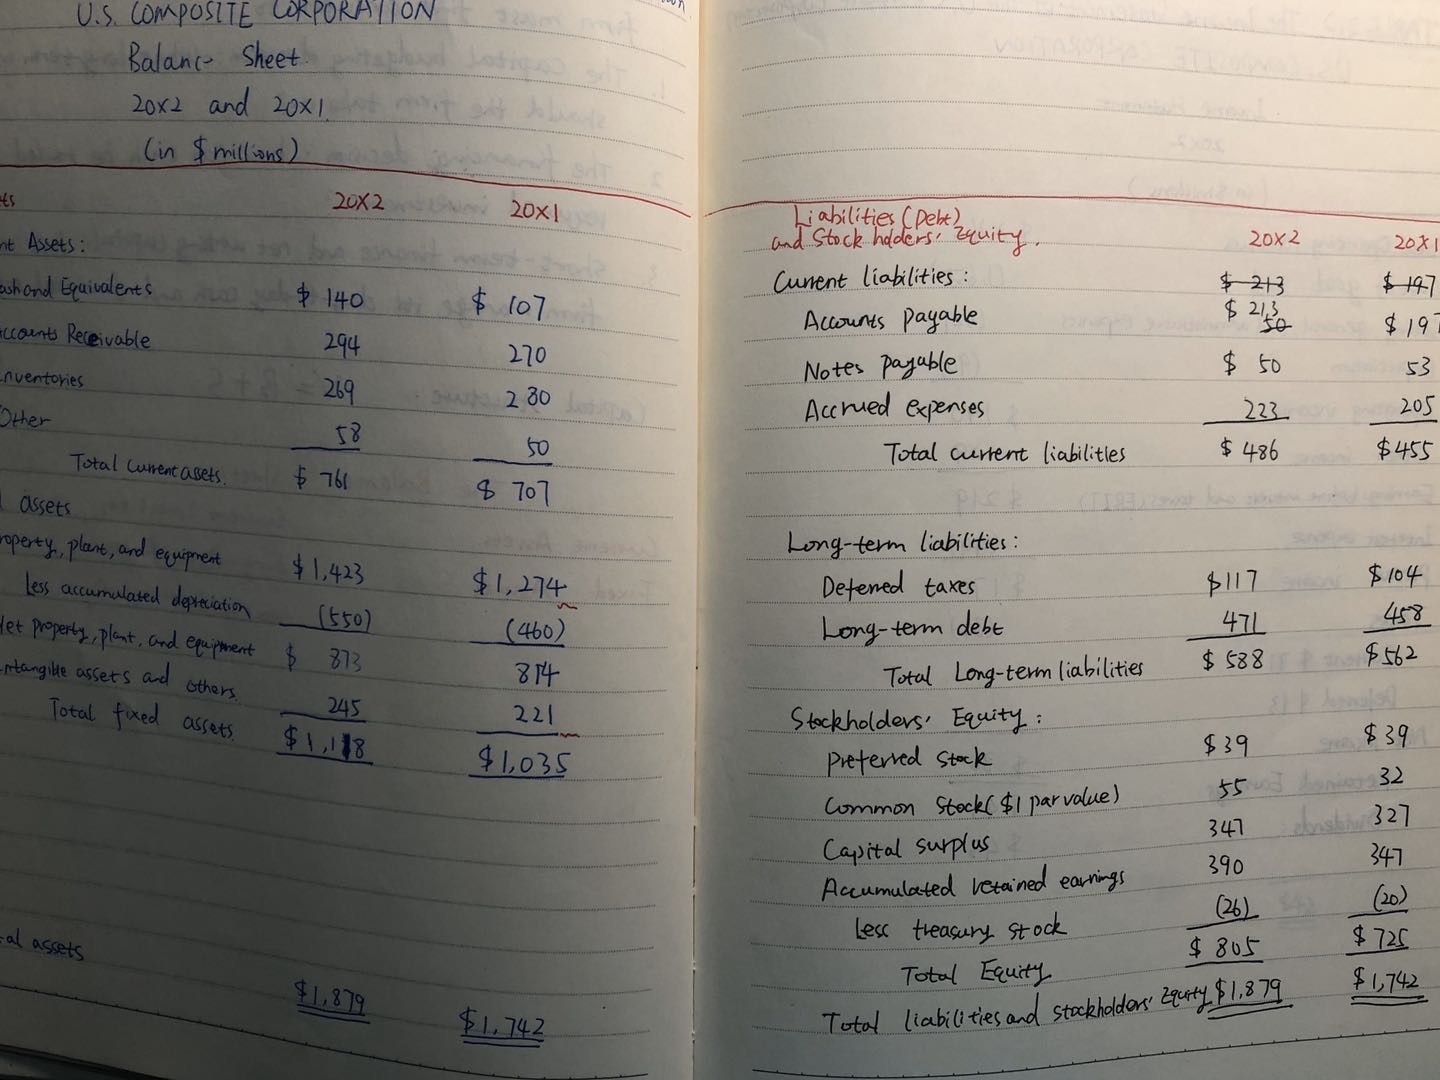 U.S. COMPOSITE CORPORATION
Balance Sheet
20X2 and 20X1
(in $ millions)
ts 20X2 20X1
nt Assets:
ash and Equivalents $ 140 $ 107
ccounts Receivable 294 270
nventories 269 280
Other 58 50
Total Current assets. $ 761 $ 707
assets
roperty, plant, and equipment $1,423 $1,274
Less accumulated depreciation (550) (460)
Net property, plant, and equipment $ 873 814
ntangible assets and others 245 221
Total fixed assets $1,118 $1,035
al assets
$1,879 $1,742
Liabilities (Debt)
and Stock holders' Equity. 20X2 20X1
Current liabilities: $ 213 $ 197
Accounts payable $ 213 50 $ 197
Notes payable $ 50 53
Accrued expenses 223 205
Total current liabilities $ 486 $455
Long-term liabilities:
Deferred taxes $117 $104
Long-term debt 471 458
Total Long-term liabilities $ 588 $562
Stockholders' Equity:
Preferred stock $39 $39
Common Stock ($1 par value) 55 32
Capital surplus 347 327
Accumulated retained earnings 390 347
Less treasury stock (26) (20)
Total Equity $ 805 $ 725
Total liabilities and stockholders' Equity $1,879 $1,742